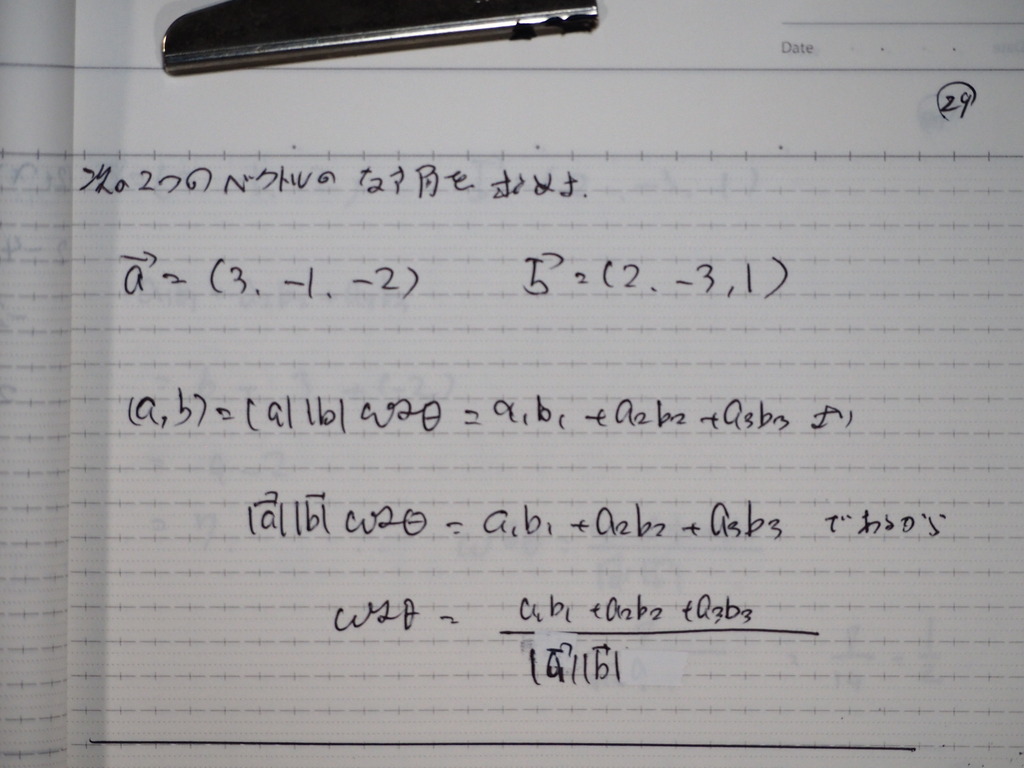 Date
29
次の2つのベクトルのなす角を求めよ.
a⃗ = (3, -1, -2) b⃗ = (2, -3, 1)
(a, b) = |a||b| cosθ = a₁b₁ + a₂b₂ + a₃b₃ より
|a⃗||b⃗| cosθ = a₁b₁ + a₂b₂ + a₃b₃ であるから
cosθ = a₁b₁ + a₂b₂ + a₃b₃
|a⃗||b⃗|